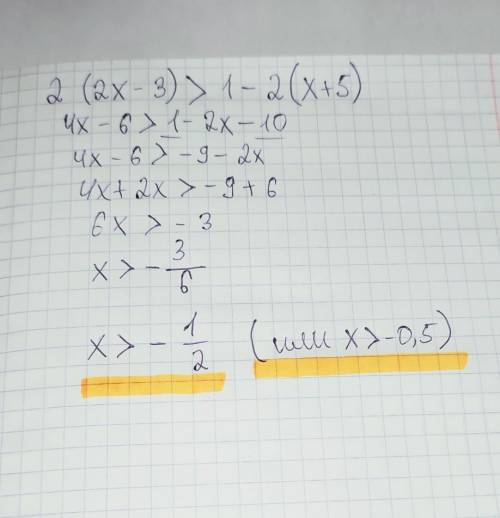 2 (2x - 3) > 1 - 2(x+5)
4x - 6 > 1 - 2x - 10
4x - 6 > -9 - 2x
4x + 2x > -9 + 6
6x > -3
x > - 3/6
x > - 1/2 (или x > -0,5)